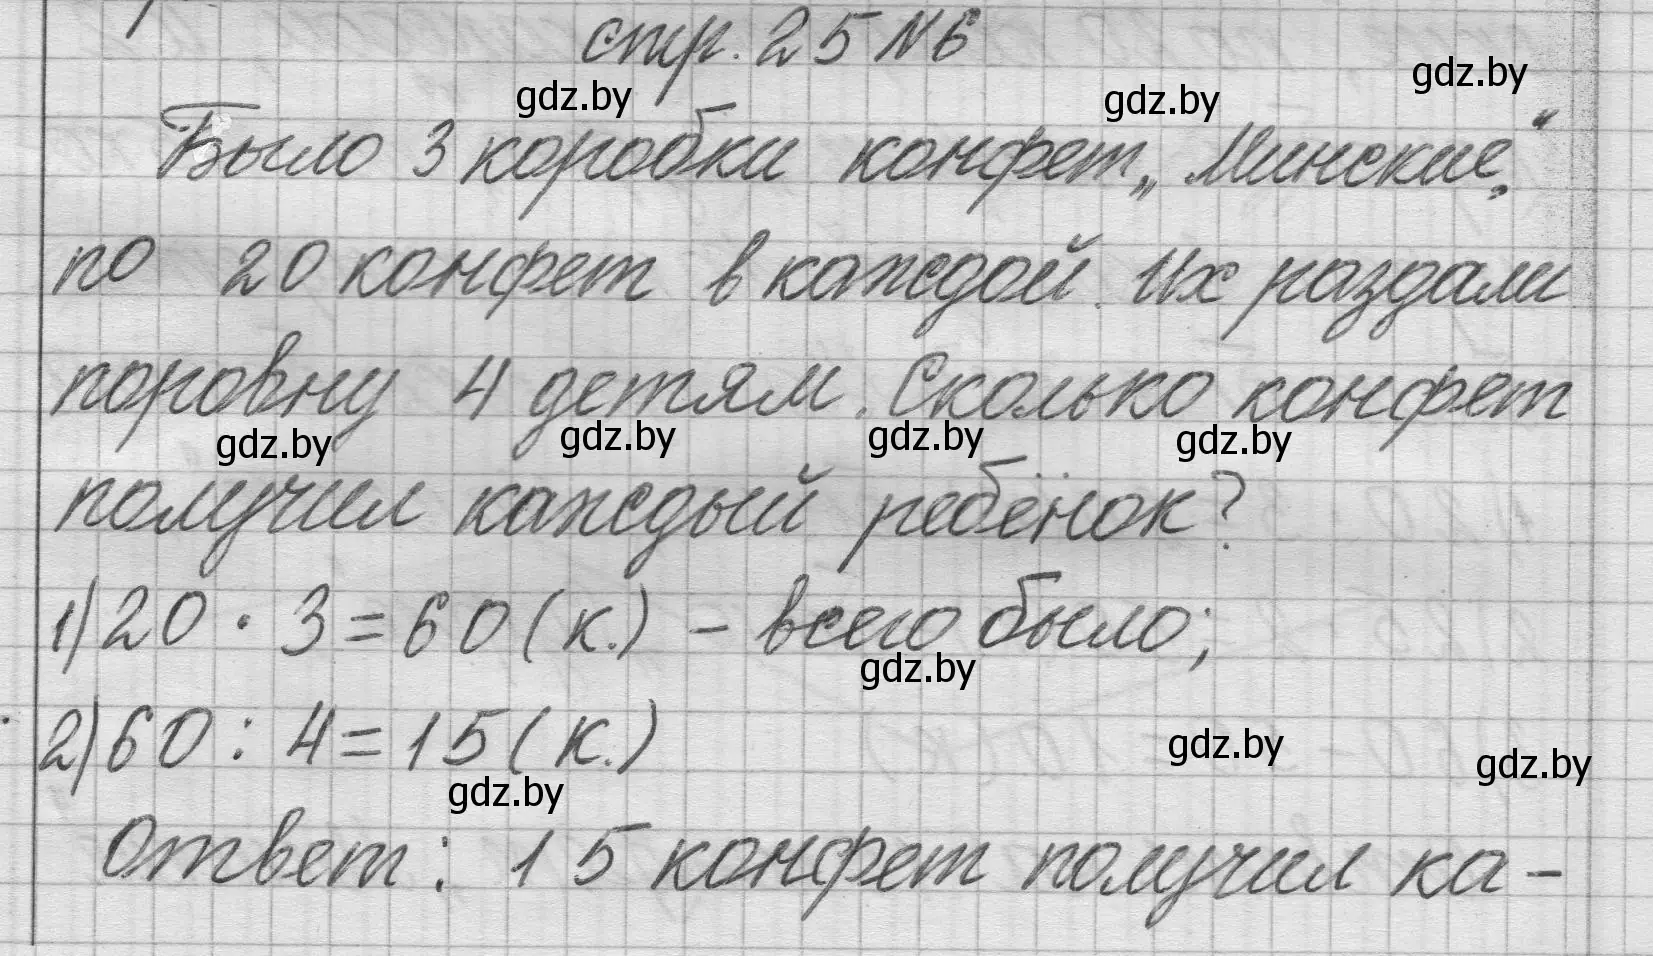 стр. 25 №6
gdz.by gdz.by gdz.by
Было 3 коробки конфет „Минские“,
по 20 конфет в каждой. Их раздали
поровну 4 детям. Сколько конфет
gdz.by gdz.by gdz.by gdz.by
получил каждый ребёнок?
1) 20 · 3 = 60 (к.) – всего было;
gdz.by
2) 60 : 4 = 15 (к.)
gdz.by gdz.by gdz.by
Ответ: 15 конфет получил ка-